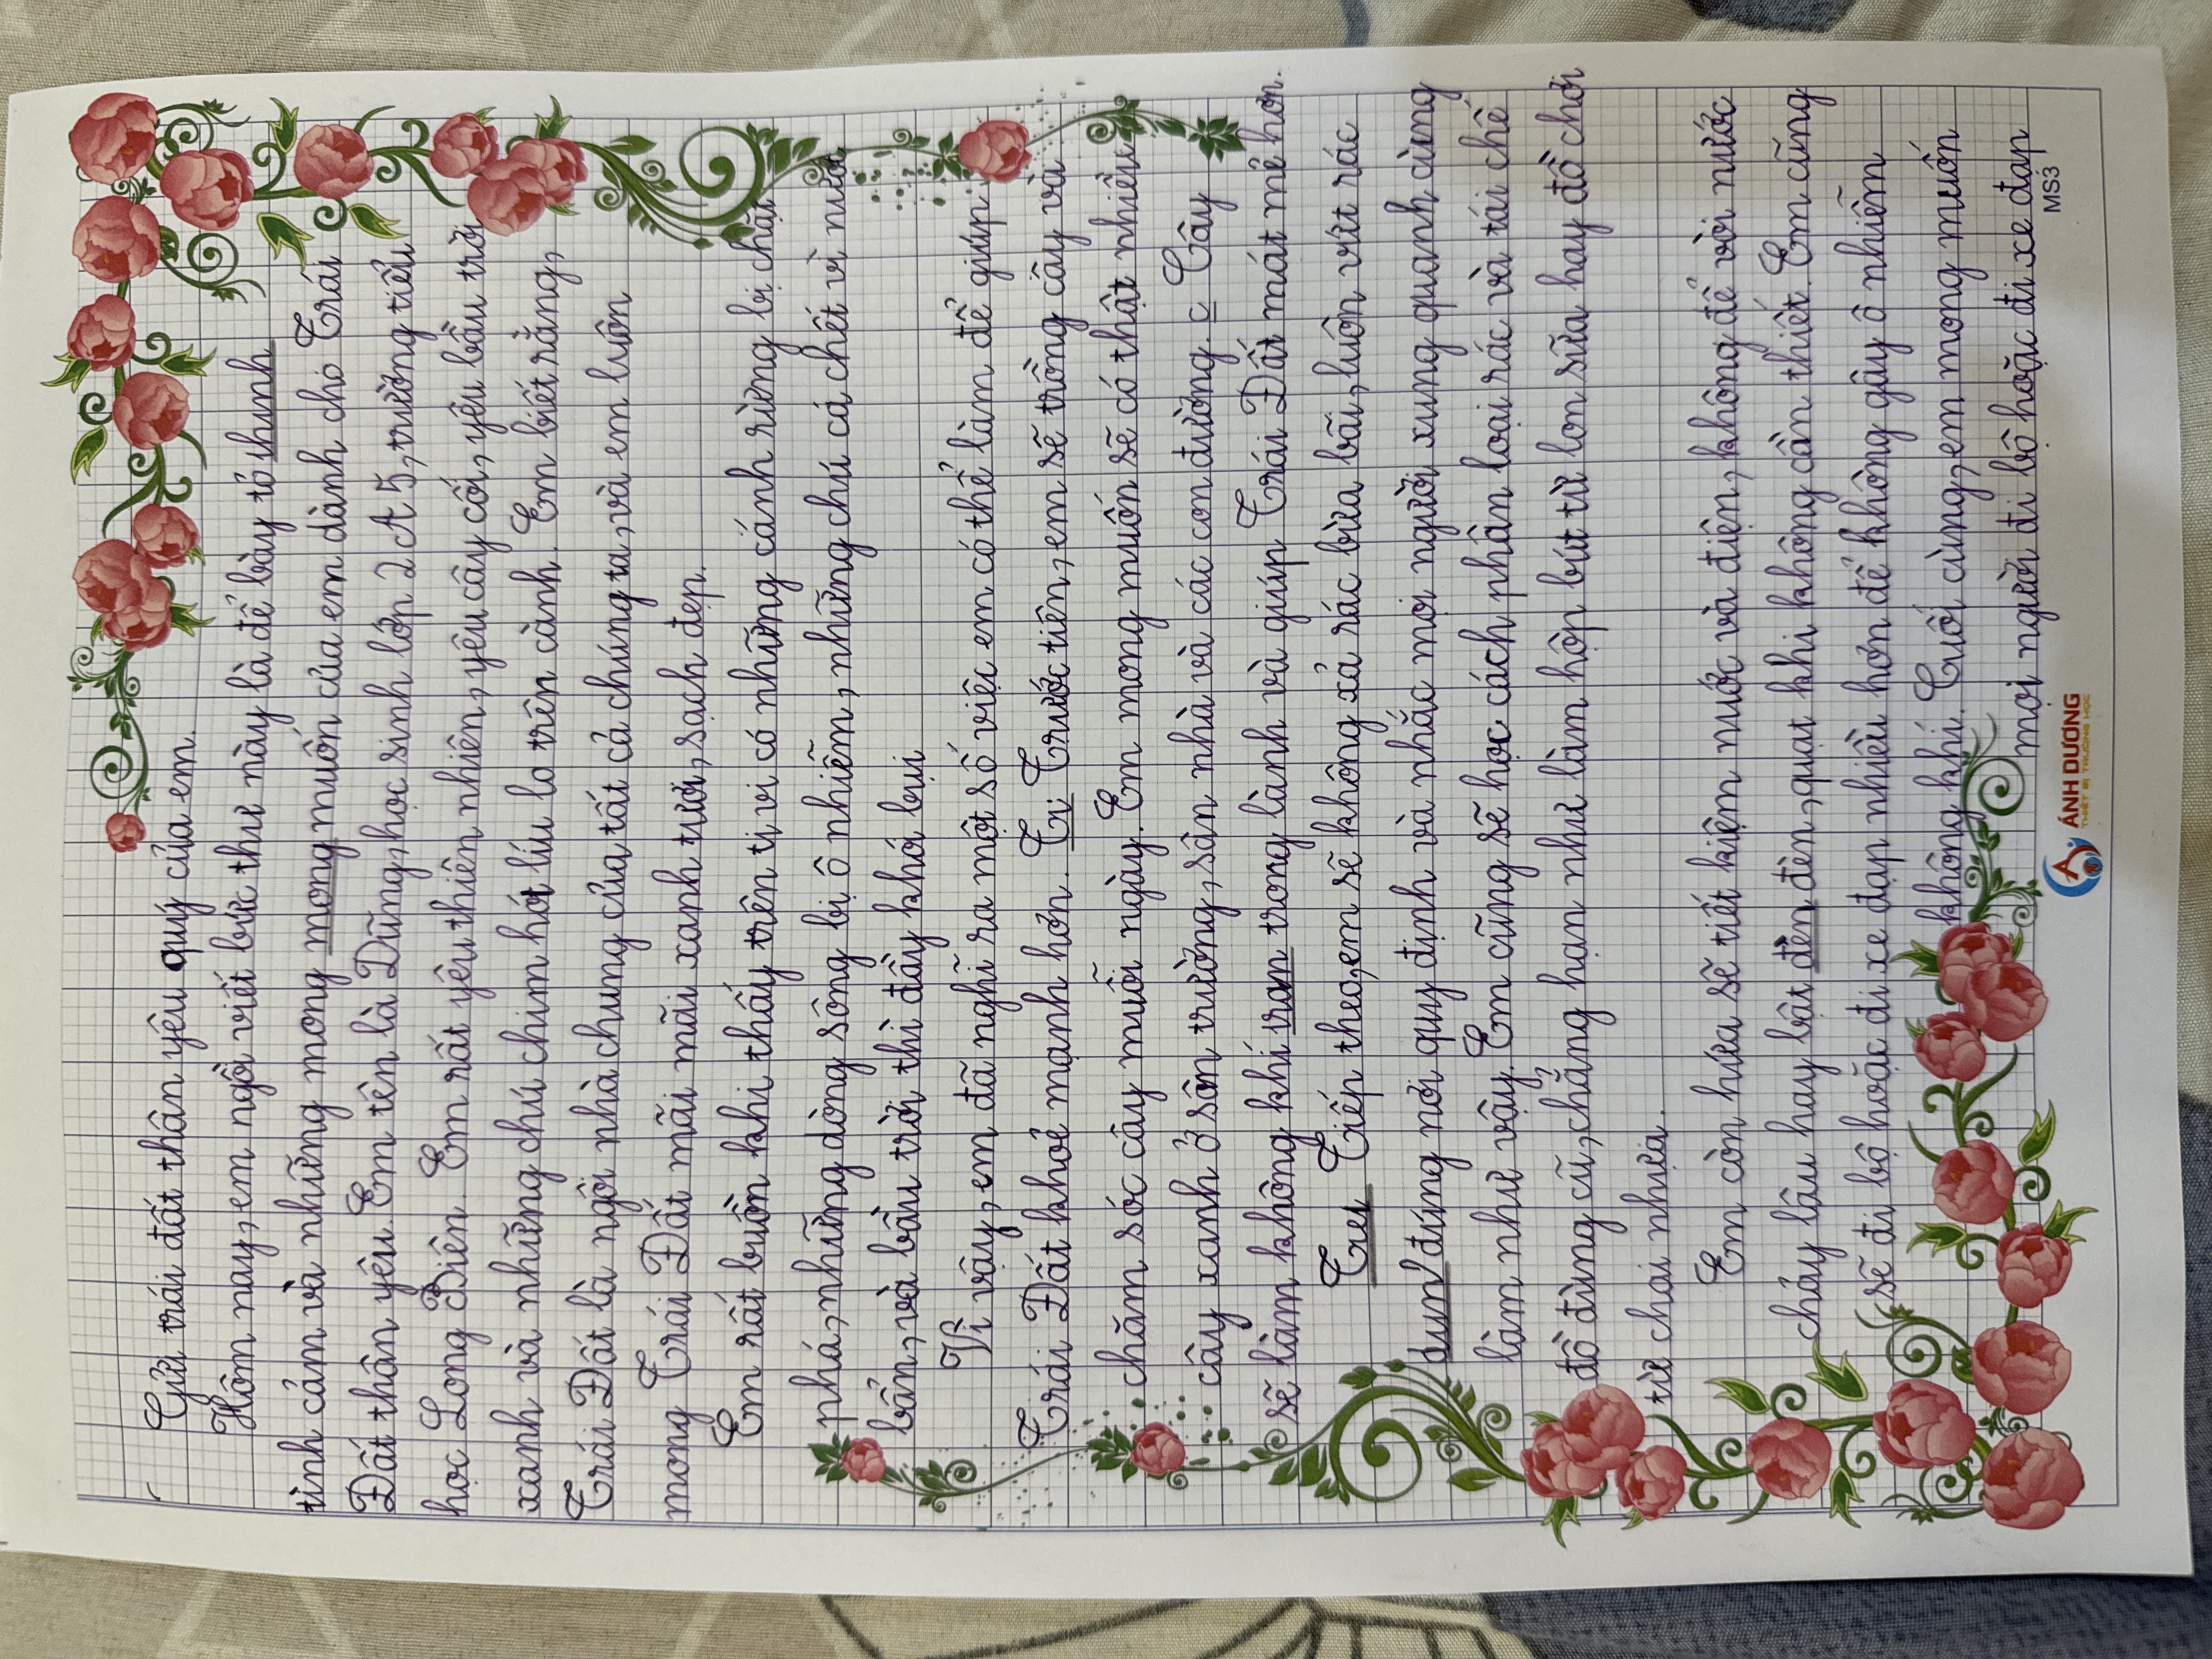 Gửi trái đất thân yêu quý của em.
Hôm nay, em ngồi viết bức thư này là để bày tỏ thunh
tình cảm và những mong mong muốn của em dành cho Trái
Đất thân yêu. Em tên là Dũng, học sinh lớp 2A5, trường tiểu
học Long Biên. Em rất yêu thiên nhiên, yêu cây cối, yêu bầu trời
xanh và những chú chim hót líu lo trên cành. Em biết rằng,
Trái Đất là ngôi nhà chung của tất cả chúng ta, và em luôn
mong Trái Đất mãi mãi xanh tươi, sạch đẹp.
Em rất buồn khi thấy trên ti vi có những cánh rừng bị chặt
phá, những dòng sông bị ô nhiễm, những chú cá chết vì nước
bẩn, và bầu trời thì đầy khói bụi.
Vì vậy, em đã nghĩ ra một số việc em có thể làm để giúp
Trái Đất khoẻ mạnh hơn. Tr Trước tiên, em sẽ trồng cây và
chăm sóc cây mỗi ngày. Em mong muốn sẽ có thật nhiều
cây xanh ở sân trường, sân nhà và các con đường. c Cây
sẽ làm không khí tron trong lành và giúp Trái Đất mát mẻ hơn.
Trei Tiếp theo, em sẽ không xả rác bừa bãi, luôn vứt rác
đún đúng nơi quy định và nhắc mọi người xung quanh cùng
làm như vậy. Em cũng sẽ học cách phân loại rác và tái chế
đồ dùng cũ, chẳng hạn như làm hộp bút từ lon sữa hay đồ chơi
từ chai nhựa.
Em còn hứa sẽ tiết kiệm nước và điện, không để vòi nước
chảy lâu hay bật đèn đèn, quạt khi không cần thiết. Em cũng
sẽ đi bộ hoặc đi xe đạp nhiều hơn để không gây ô nhiễm
không khí. Cuối cùng, em mong muốn
mọi người đi bộ hoặc đi xe đạp
ÁNH DƯƠNG
THIẾT BỊ TRƯỜNG HỌC
MS3